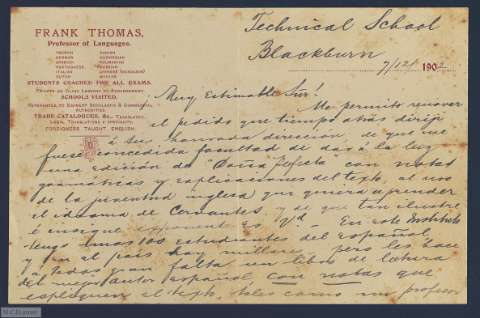 FRANK THOMAS,
Professor of Languages.
FRENCH DANISH
GERMAN NORWEGIAN
SPANISH
PORTUGUESE RUSSIAN
ITALIAN
DUTCH
STUDENTS COACHED FOR ALL EXAMS.
SCHOOLS VISITED.
TRADE CATALOGUES, &c., Translated.
FOREIGNERS TAUGHT ENGLISH.
Technical School
Blackburn
7/12/ 190
Muy Estimable Sr!
Me permito renovar
el pedido que tiempo atrás dirigí
á su honrada dirección, de que me
fuese concedida facultad de dar á la luz
una edición de "Doña Perfecta" con notas
gramáticas y explicaciones del texto, al uso
de la juventud inglesa que quiera aprender
el idioma de Cervantes y de que tan ilustre
é insigne exponente es Vd. En este Instituto
tengo unos 100 estudiantes del español
y en el país hay millares pero les hace
á todos gran falta un libro de lectura
del mejor autor español con notas que
expliquen el texto, tales como un profesor